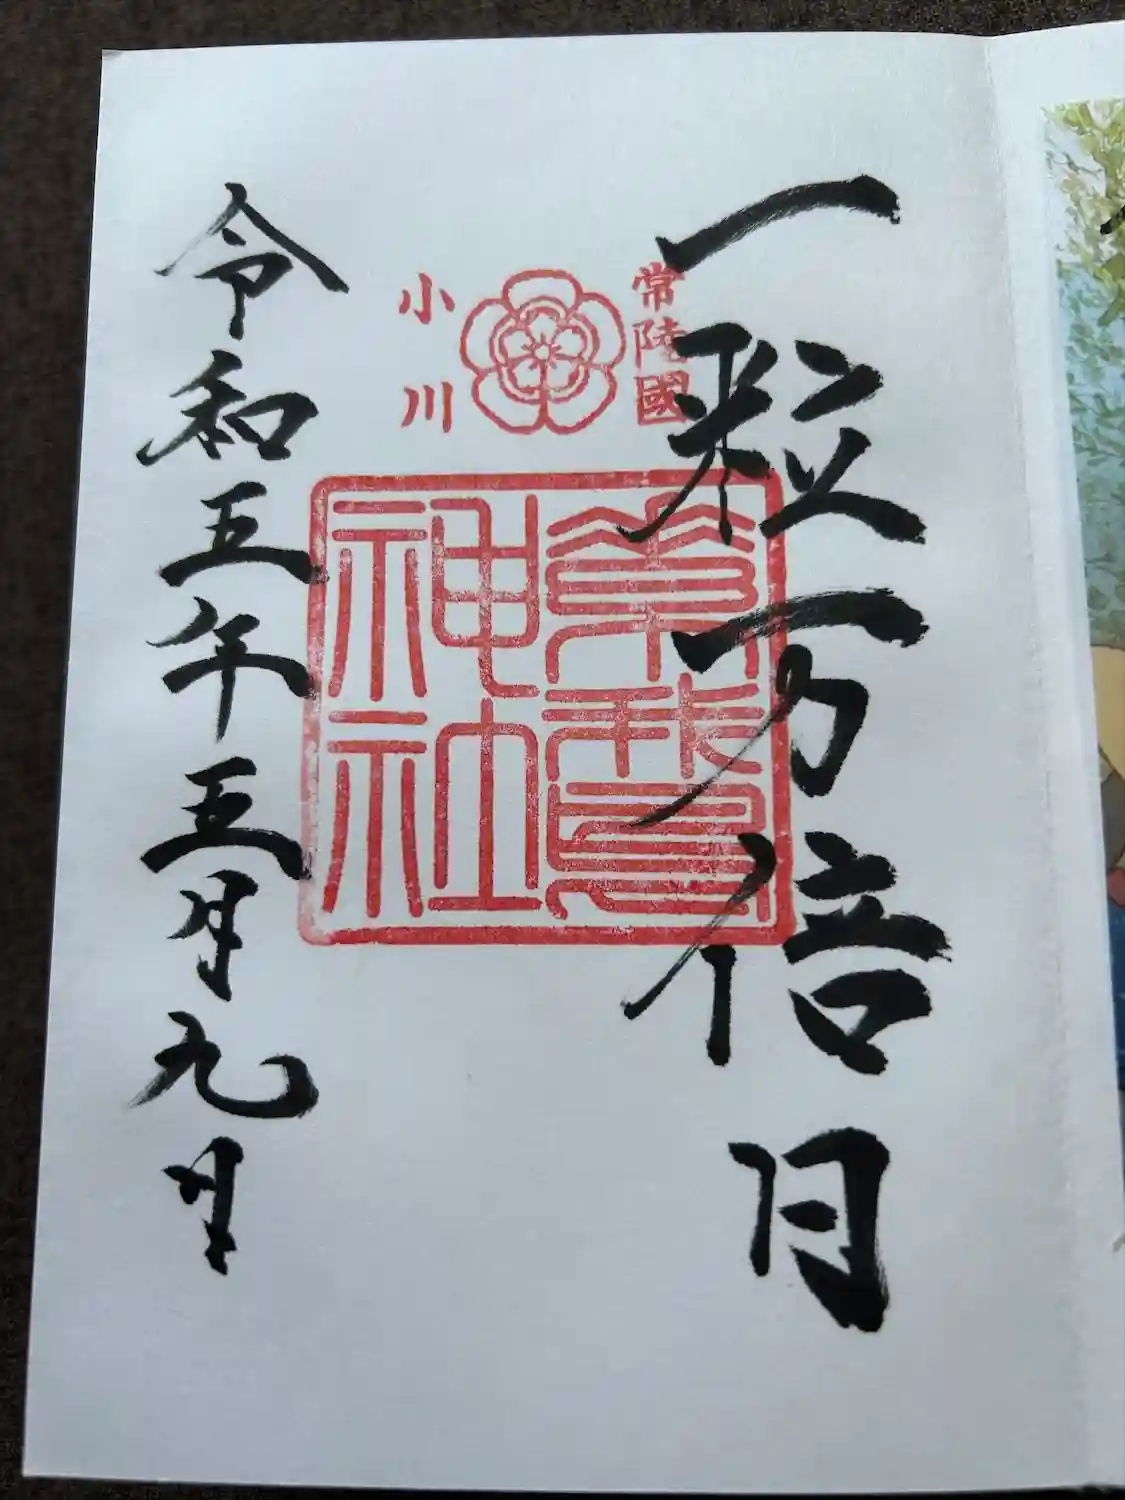 一粒万倍日
常陸國
小川
素鵞神社
令和五年五月九日